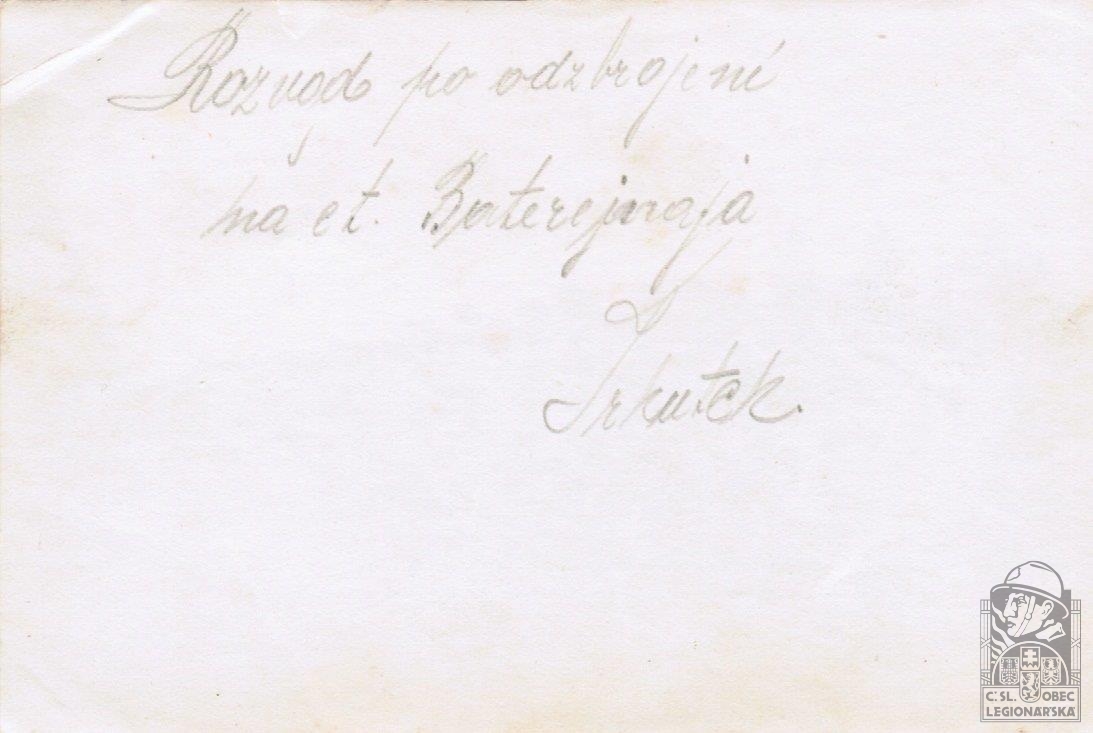 Rozvod po odzbrojení
na st. Baterejnaja
Irkutsk.
Č. SL. OBEC
LEGIONÁŘSKÁ